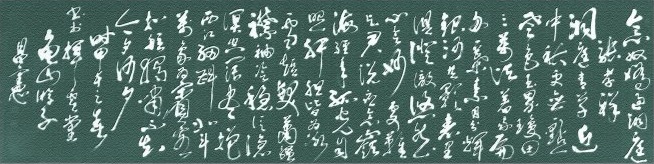 念奴娇過洞庭
张孝祥
洞庭青草近
中秋更无一點
風色玉界琼田
三万顷着我扁
舟一葉素月分辉
银河共影表里
俱澄澈悠然
心会妙處難
与君说应念嶺
海经年孤光自
照肝胆皆冰
雪短髮萧骚
襟袖冷稳泛沧
溟空阔尽挹
西江细斟北斗
万象为賓客
扣舷独啸不知
今夕何夕
时甲午之春